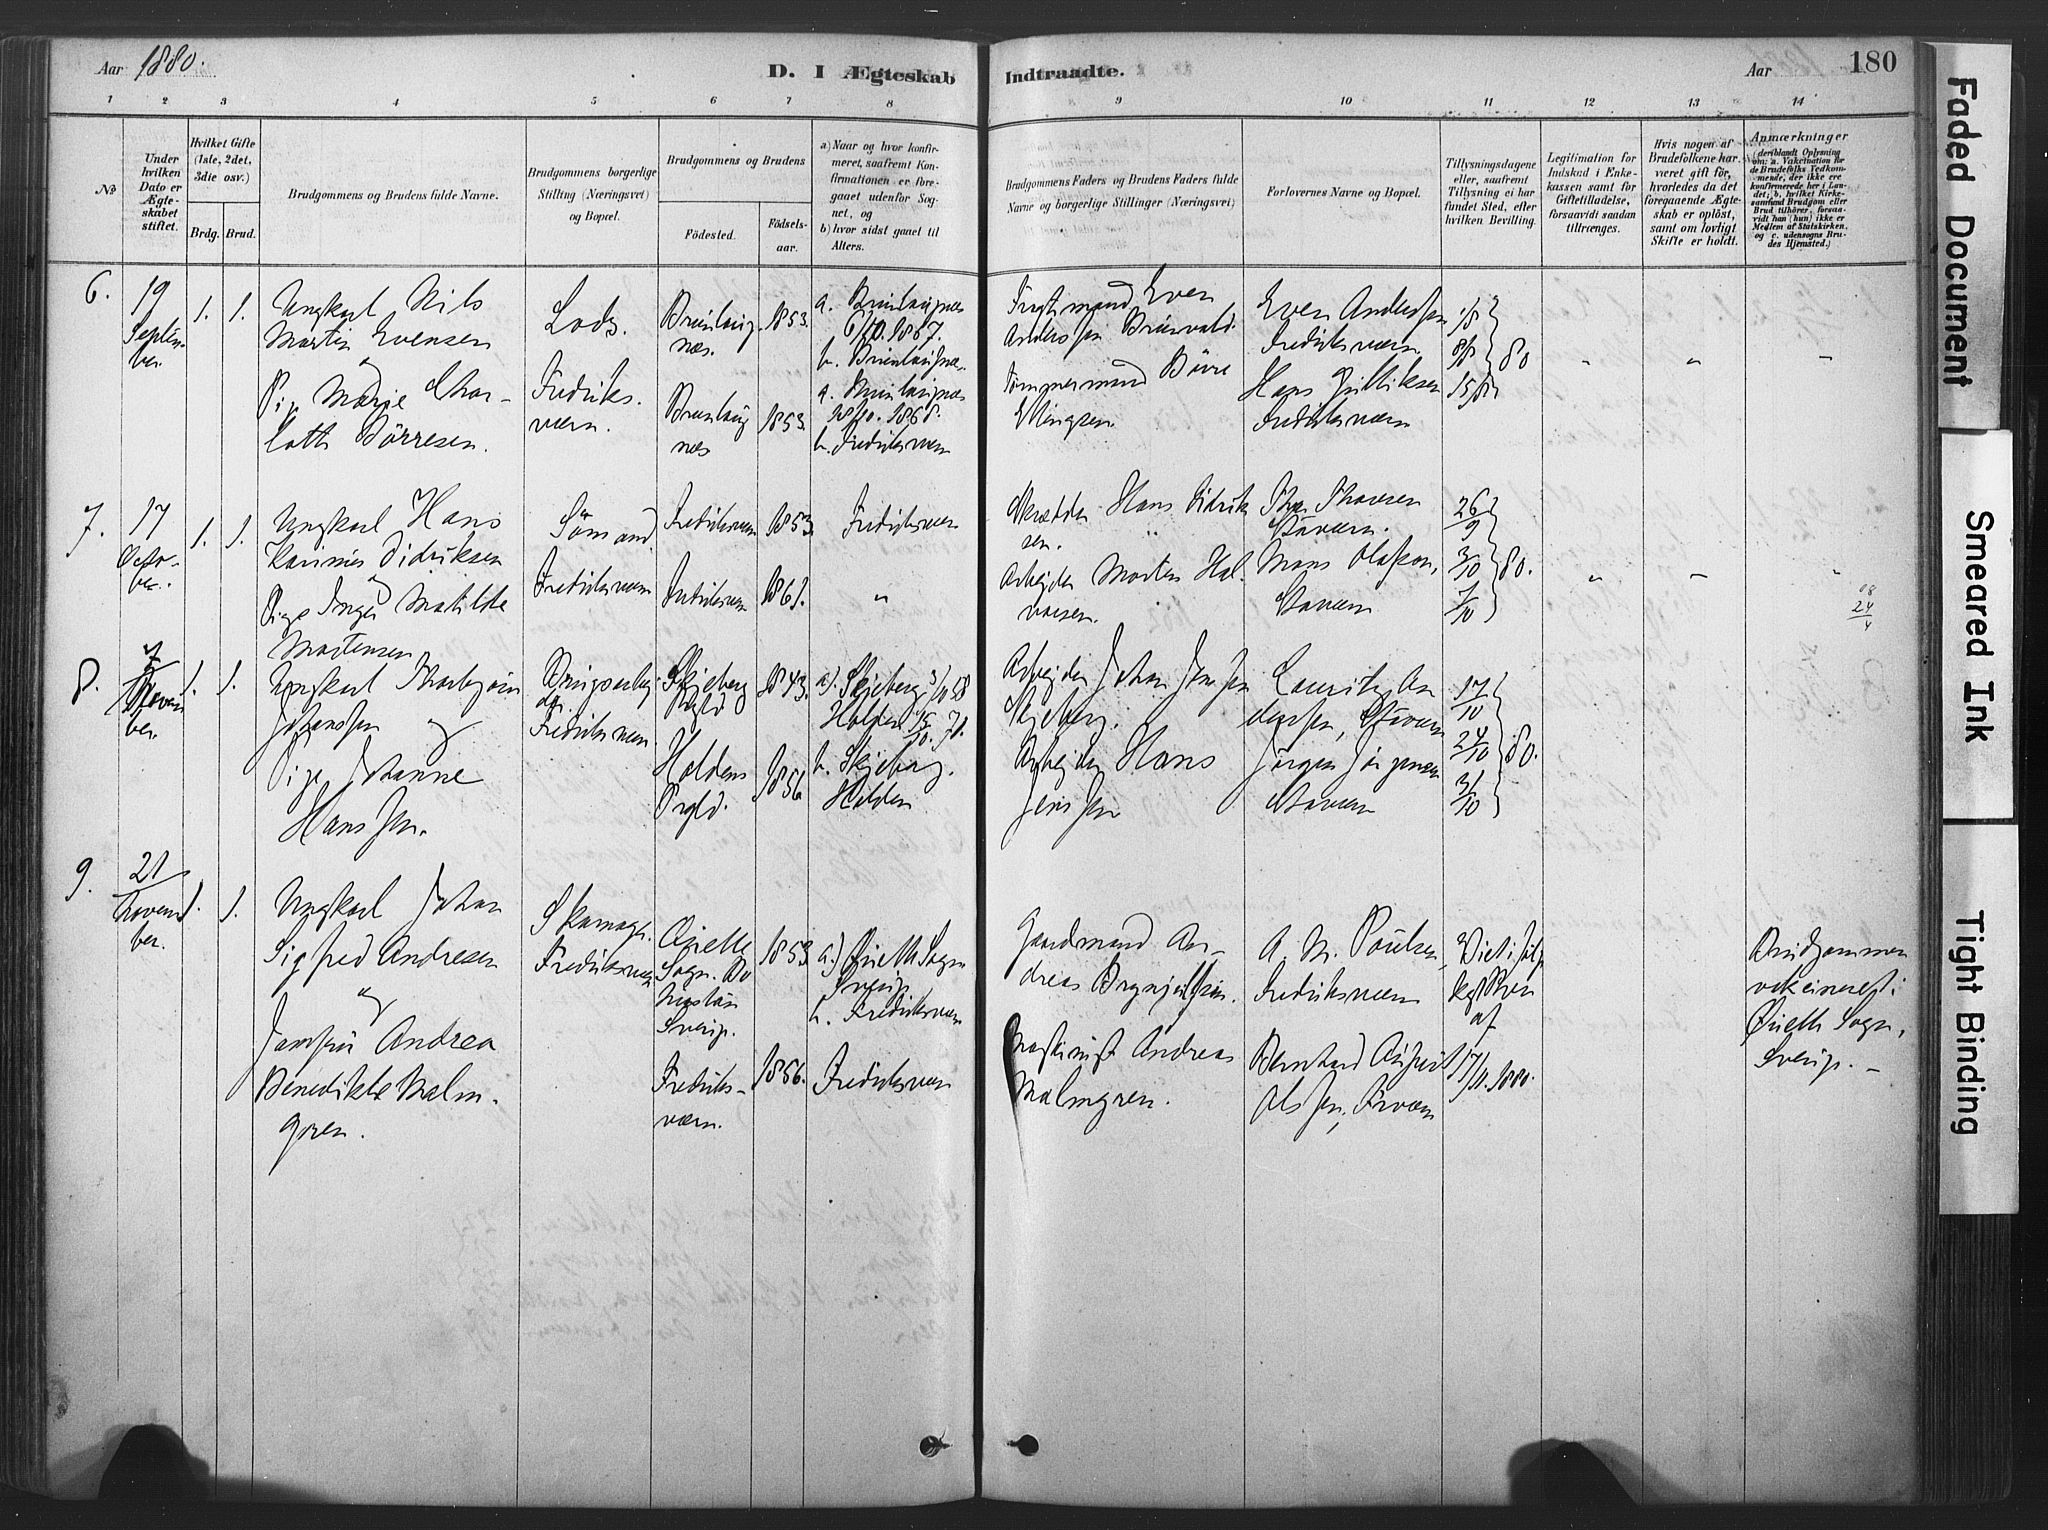 Aar 1880.
D. I Ægteskab
Indtraadte.
Aar
180
1 2 3 4 5 6 7 8
8 9 10 11 12 13 14
No
Under
hvilken
Dato er
Ægte-
skabet
stiftet.
Hvilket Gifte
(1ste, 2det,
3die osv.)
Brdg. Brud.
Brudgommens og Brudens fulde Navne.
Brudgommens borgerlige
Stilling (Næringsvei)
og Bopæl.
Brudgommens og Brudens
Fødested.
Fødsels-
aar.
a) Naar og hvor konfir-
meret, saafremt Kon-
firmationen er fore-
gaaet udenfor Sog-
net, og
b) hvor sidst gaaet til
Alters.
Brudgommens Faders og Brudens Faders fulde
Navne og borgerlige Stillinger (Næringsvei)
Forlovernes Navne og Bopæl.
Tillysningsdagene
eller, saafremt
Tillysning ei har
fundet Sted, efter
hvilken Bevilling.
Legitimation for
Indskud i Enke-
kassen samt for
Giftetilladelse,
forsaavidt saadan
tiltrænges.
Hvis nogen af
Brudefolkene har
været gift før,
hvorledes da det
foregaaende Ægte-
skab er opløst,
samt om lovligt
Skifte er holdt.
Anmærkninger
(deriblandt Oplysning
om: a. Vakcination for
de Brudefolks Vedkom-
mende, der ikke ere
konfirmerede her i Lan-
det; b. hvilket Kirke-
samfund Brudgom eller
Brud tilhører, forsaa-
vidt han (hun) ikke er
Medlem af Statskirken,
og c. udensogns Bru-
des Hjemsted.)
6.
19
Septem-
ber.
1. 1.
Ungkarl Nils
Martin Evensen
og
Pige Marie Char-
lotte Börresen.
Lods.
Fredriks-
værn.
Brunlaug-
næs.
1853.
Brunlaug
næs
1853.
a. Brunlaugnæs
6/10. 1867.
b. Brunlaugnæs.
a. Brunlaugnæs
18/10. 1868.
b. Fredriksværn
Even
Anderssen
Tømmermand Börre
Ellingsen.
Even Anderssen
Fredriksværn.
Hans Gulliksen
Fredriksværn
1/8
8/8
15/8
80
7.
17
Octo-
ber.
1. 1.
Ungkarl Hans
Didriksen
og
Pige Inger Matilde
Mortensen
Sömand
Fredriksværn
Fredriksværn
1853.
Fredriksværn
1861.
Fredriksværn
"
Skrædder Hans Didrik
sen.
Arbejder Morten Hal-
vorsen.
Thor Thoresen
Stavern.
Mons Olafson,
Stavern
26/9
3/10
1/10
80.
"
08
24/4
8.
7/
Novem
ber.
1. 1.
Ungkarl Thorbjörn
Johanssen og
Pige Johanne
Hanssen.
Fredriksværn.
Skjeberg
Prgld
1843.
Holdens
Prgld.
1856
a). Skjeberg 3/10 58
Holden 15/10. 71.
b. Skjeberg.
Holden
Arbejder Johan Jenssen
Skjeberg.
Arbejder Hans
Jenssen
Lauritz An
derssen, Stavern
Jörgen Jörgensen
Stavern
17/10
24/10
31/10
80.
9.
21
Novem
ber.
1. 1.
Ungkarl Johan
Sigfred Andresen
og
Jomfru Andrea
Benedikte Malm-
gren.
Skomager.
Fredriksværn
Sogn. Bo
huslän
Sverig.
1853
Fredriks-
værn.
1856.
Sogn
Sverig.
b. Fredriksværn
Fredriksværn
Gaardmand An-
dreas
Maskinist Andreas
Malmgren.
A. M. Poulsen,
Fredriksværn
Bernhard August
Olssen, Frværn
Viet i følge
kgl Brev
af
17/11. 1880.
Brudgommen
vakcineret i
Sogn,
Sverig.
Faded Document
Smeared Ink
Tight Binding